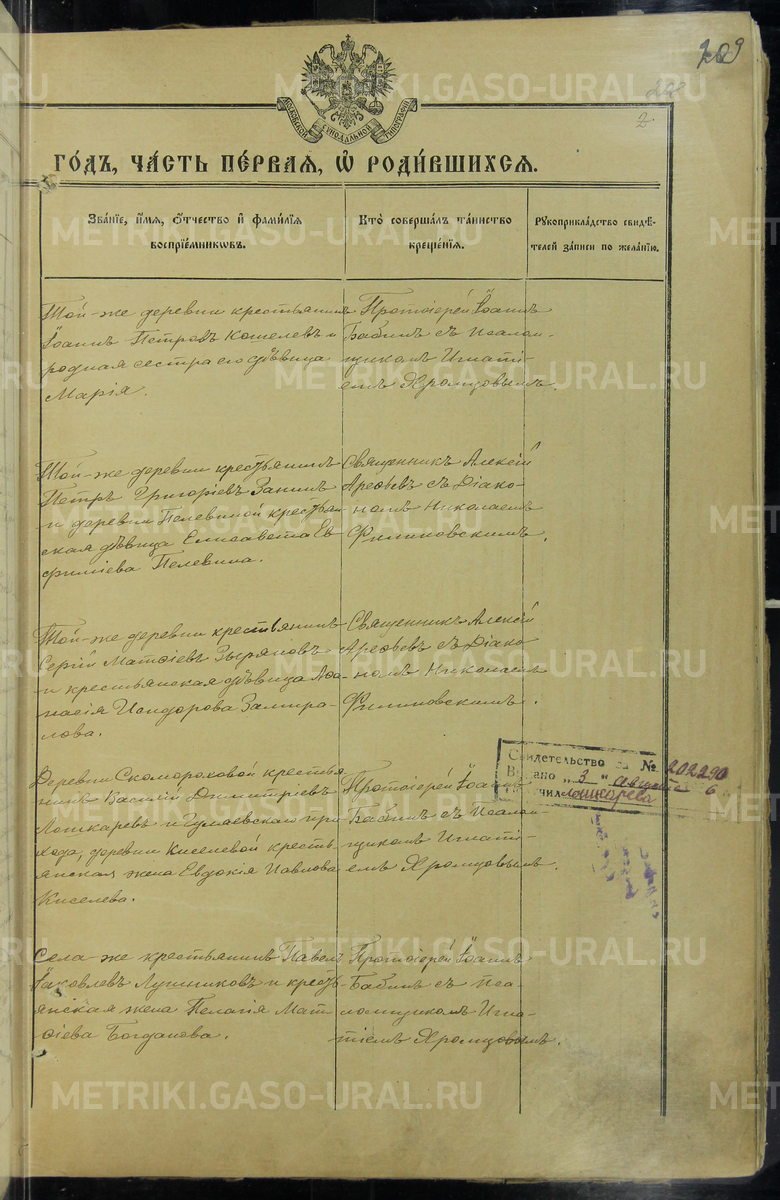 209
2.
МОСКОВСКОЙ СѴНОДАЛЬНОЙ ТИПОГРАФІИ
ГО́ДЪ, ЧА́СТЬ ПЕ́РВАѦ, Ѡ҆ РОДИ́ВШИХСѦ.
Зва́нїе, и҆́мѧ, ѻ҆́тчество и҆ фами́лїѧ
воспрїе́мникѡвъ.
Кто̀ соверша́лъ та́инство
креще́нїѧ.
Рꙋкоприкла́дство свидѣ́-
телей за́писи по жела́нїю.
Той-же деревни крестьянинъ
Іоаннъ Петровъ Кошелевъ и
родная сестра его дѣвица
Марія.
Протоіерей Іоаннъ
Бабинъ съ псалом
щикомъ Игнаті-
емъ Хромцовымъ.
Той-же деревни крестьянинъ
Петръ Григоріевъ Занинъ
и деревни Пелевиной крестьян
ская дѣвица Елисавета Ев
фиміева Пелевина.
Священникъ Алексій
Арефьевъ съ Діако-
номъ Николаемъ
Филиновскимъ.
Той-же деревни крестьянинъ
Сергій Матѳіевъ Зыряновъ
и крестьянская дѣвица Аѳа
насія Исидорова Замира-
лова.
Священникъ Алексій
Арефьевъ съ Діако-
номъ Николаемъ
Филиновскимъ.
Деревни Скомороховой крестья
нинъ Василій Димитріевъ
Лошкаревъ и Гуляевскаго при
хода, деревни Киселевой кресть
янская жена Евдокія Павлова
Киселева.
Протоіерей Іоаннъ
Бабинъ съ псалом
щикомъ Игнаті-
емъ Хромцовымъ.
Свидетельство за № 202290
"3" августа 6
Лошкарева
Села-же крестьянинъ Павелъ
Іаковлевъ Лупниковъ и кресть
янская жена Пелагія Мат
ѳіева Богданова.
Протоіерей Іоаннъ
Бабинъ съ пса-
ломщикомъ Игна-
тіемъ Хромцовымъ.
METRIKI.GASO-URAL.RU